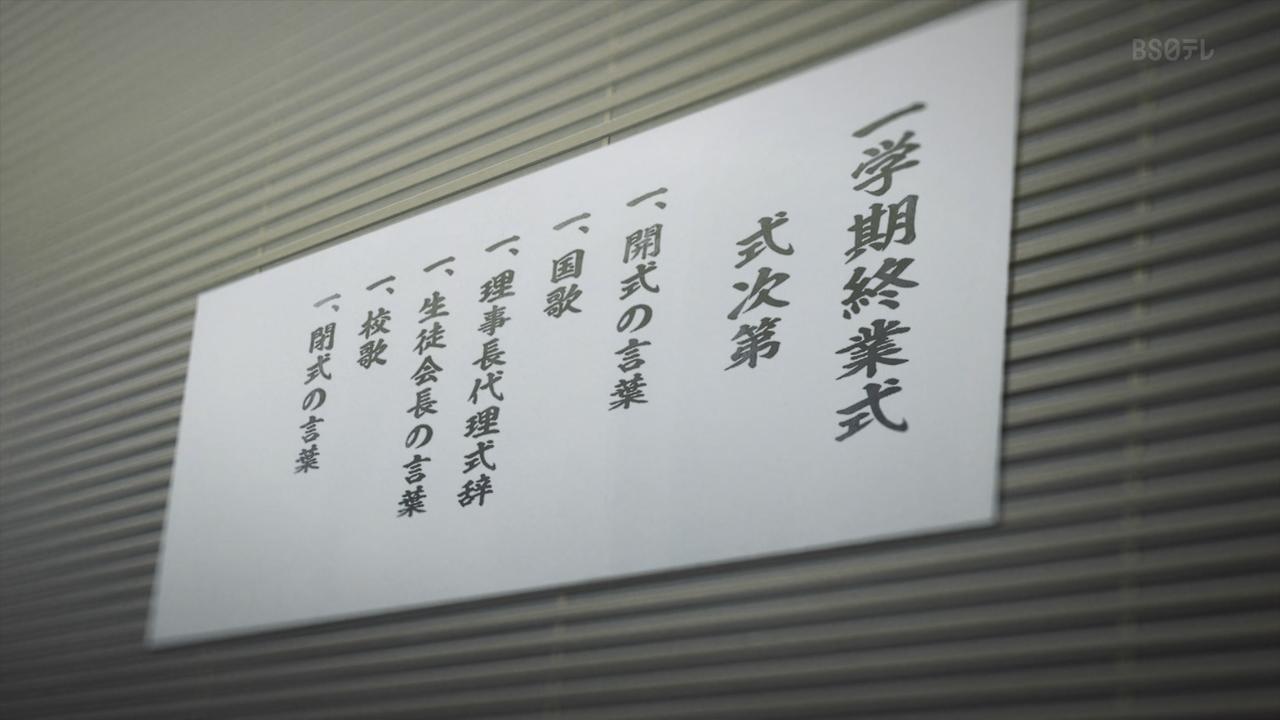 一学期終業式
式次第
一、開式の言葉
一、国歌
一、理事長代理式辞
一、生徒会長の言葉
一、校歌
一、閉式の言葉
BS日テレ